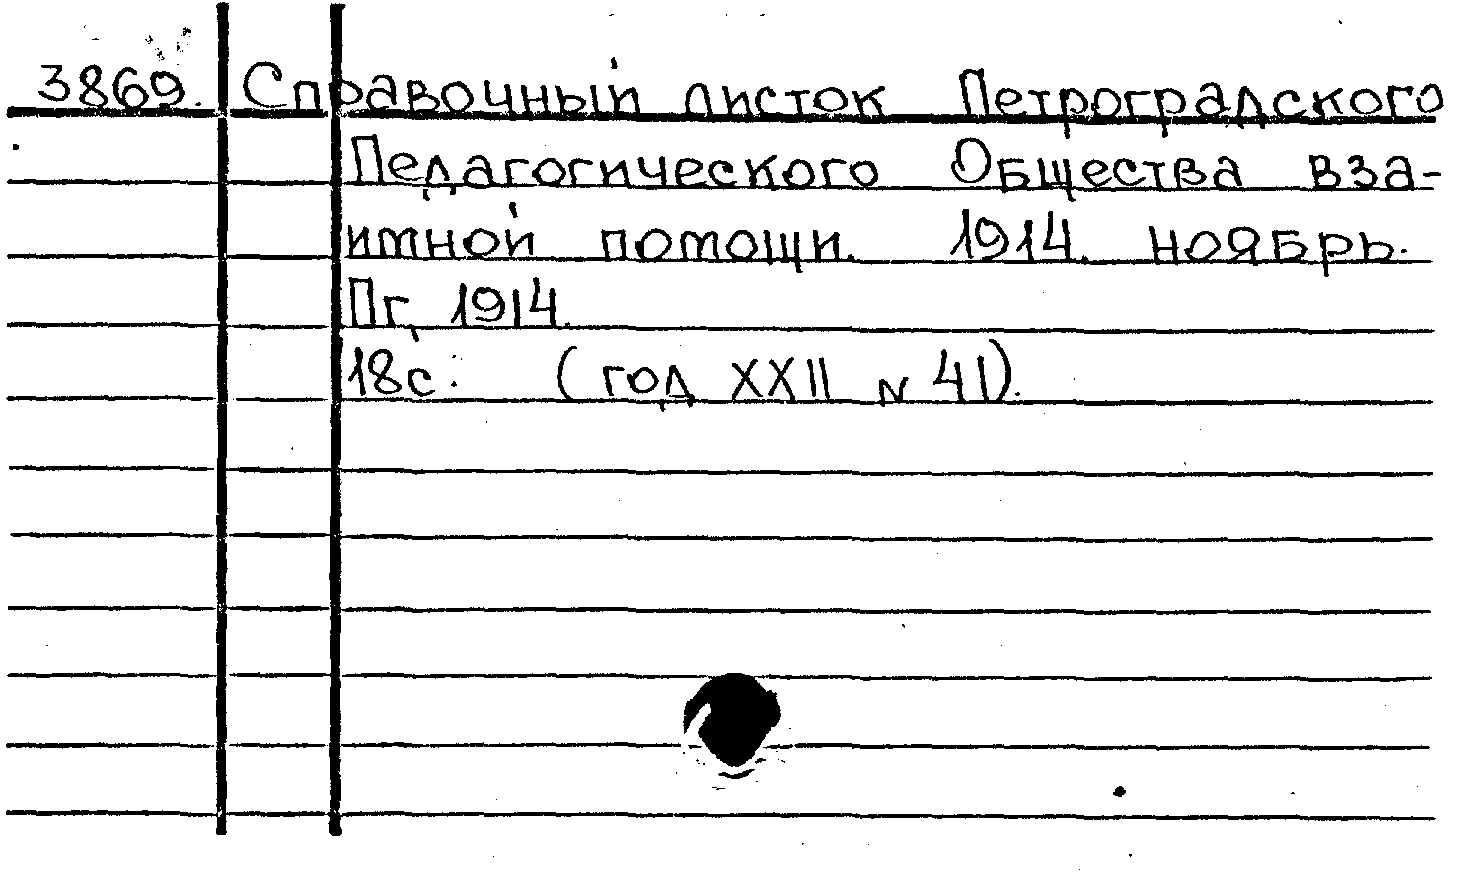 3869. Справочный листок Петроградского
Педагогического Общества вза-
имной помощи. 1914. ноябрь.
Пг, 1914.
18с. (год XXII N 41).